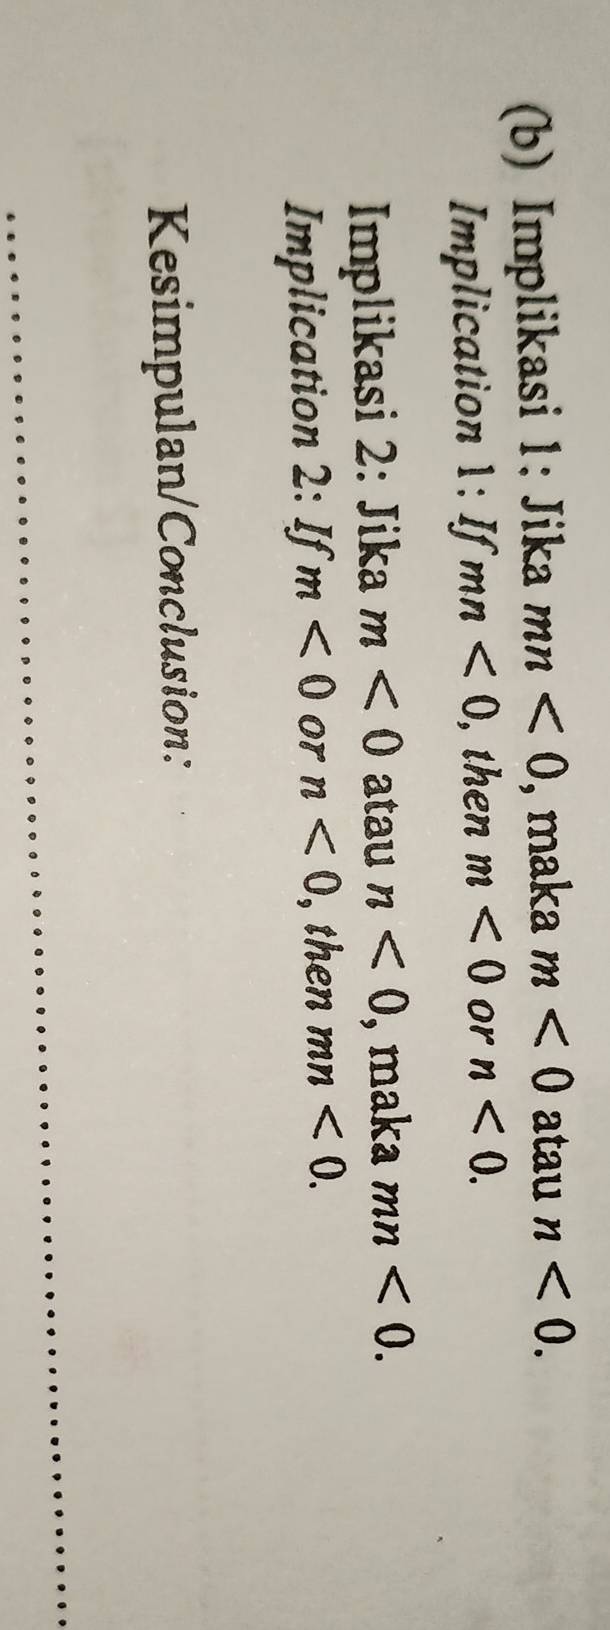 (b) Implikasi 1: Jika mn < 0, maka m < 0 atau n < 0.
Implication 1: If mn < 0, then m < 0 or n < 0.
Implikasi 2: Jika m < 0 atau n < 0, maka mn < 0.
Implication 2: If m < 0 or n < 0, then mn < 0.
Kesimpulan/Conclusion: